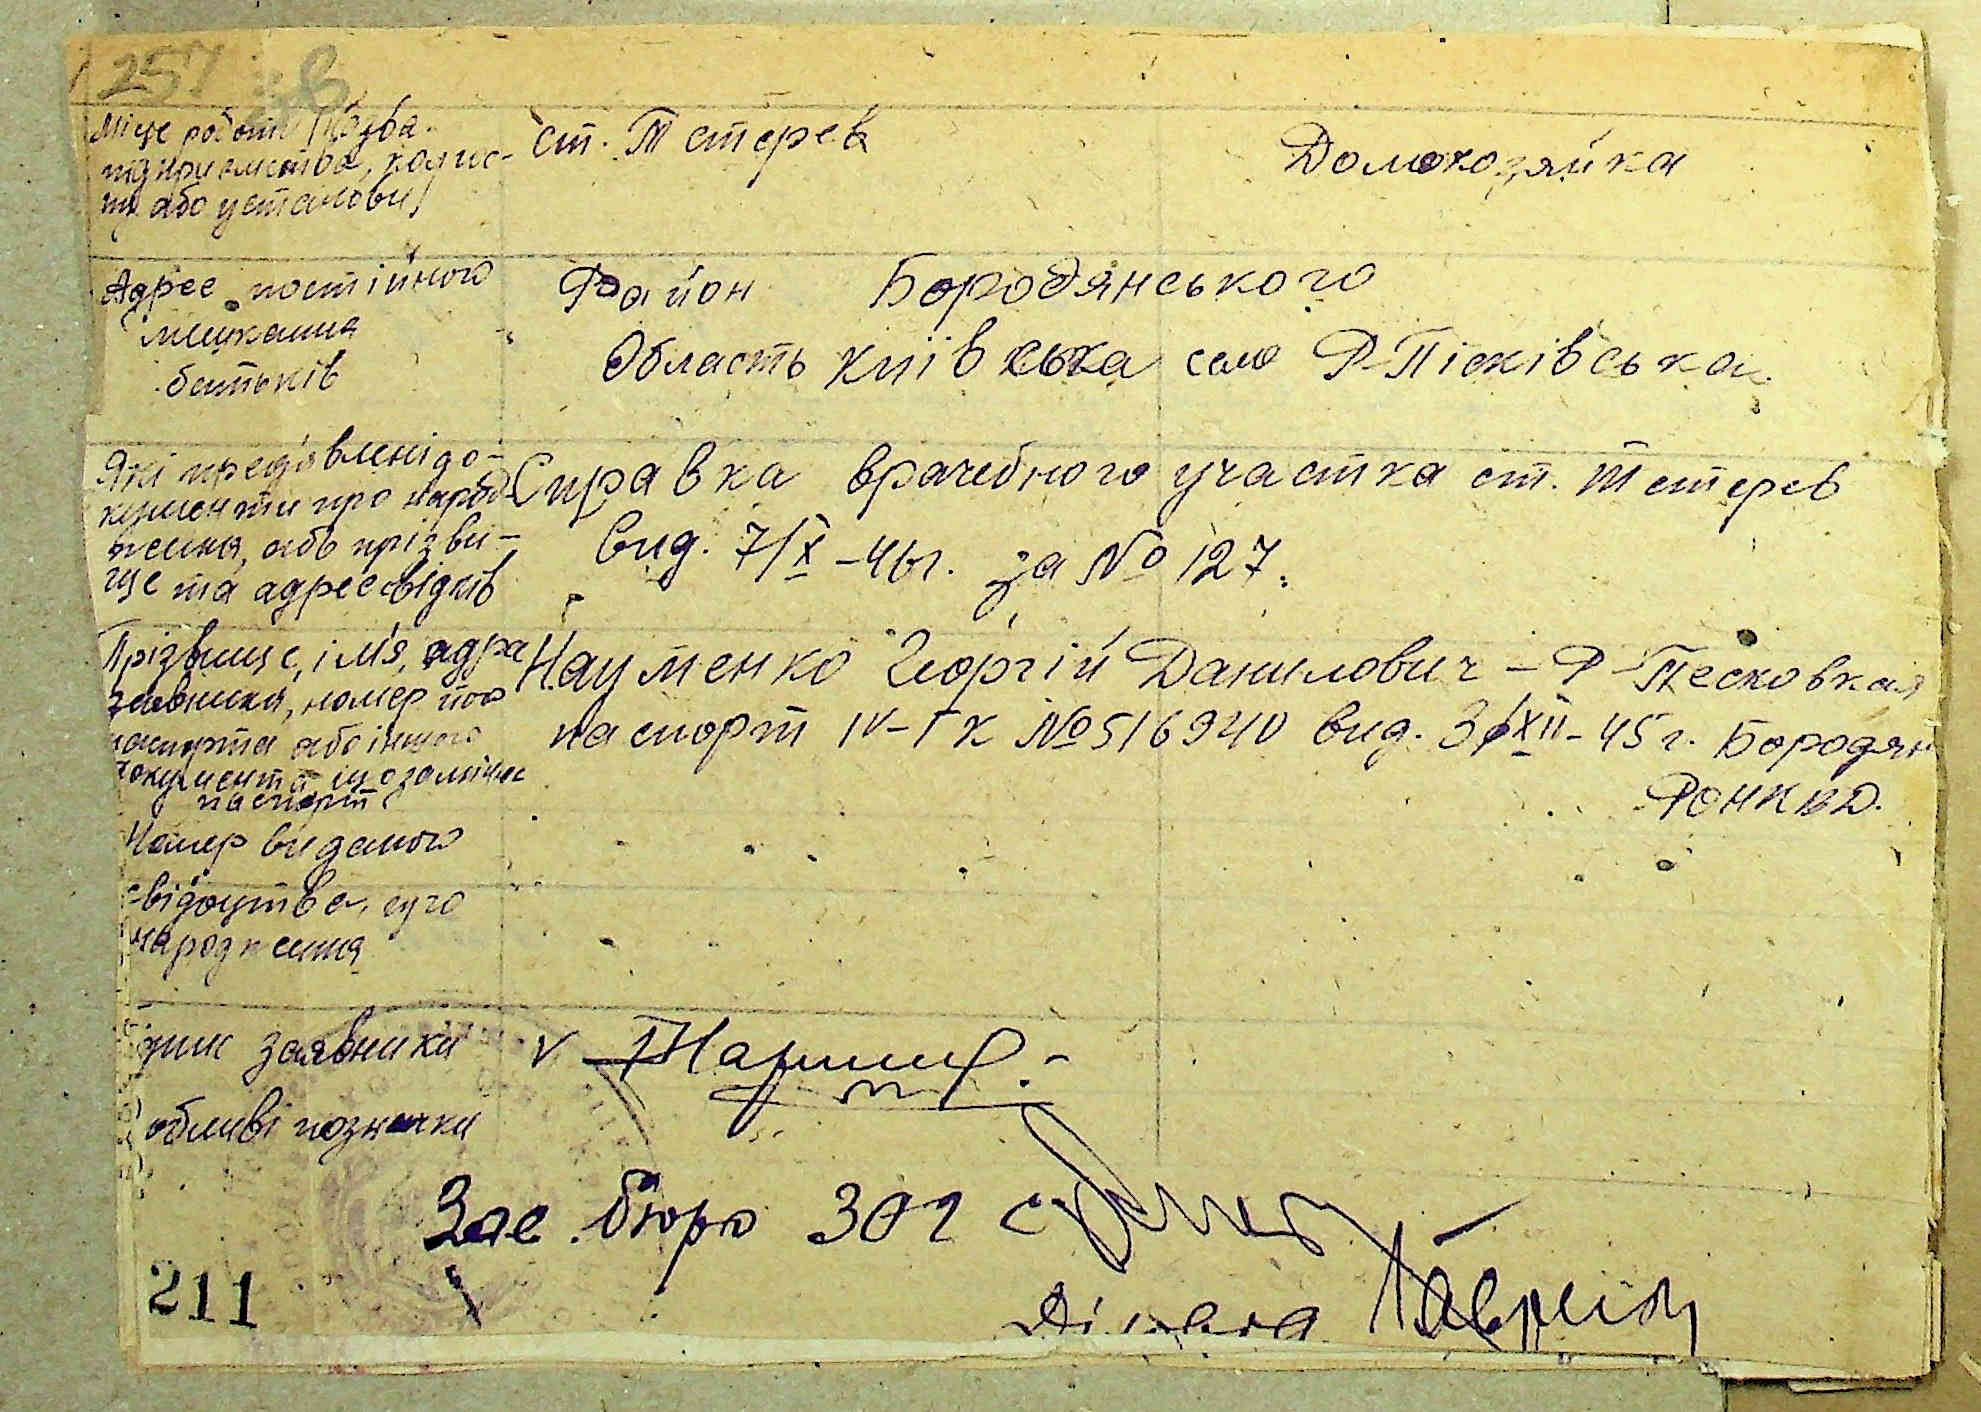 257 38
Місце роботи (назва
підприємства, колгос-
пу або установи)
ст. Тетерев
Домохозяйка
Адрес постійного
мешкання
батьків
Район Бородянського
Область Київська село Р-Пісківська
Які пред'явлені до-
кументи про народ-
ження, або прізви-
ще та адрес свідків
Справка врачебного участка ст. Тетерев
вид. 7/X-46г. за № 127.
Прізвище, ім'я, адрес
заявника, номер його
паспорта або іншого
документа що заміняє
паспорт
Науменко Георгій Данилович – Р-Песковская
паспорт IV-ГК № 516940 вид. 31/XII-45г. Бородян
РОНКВД.
Номер виданого
свідоцтва, про
народження
підпис заявника
v
особливі позначки
Зав. бюро ЗАГС
Діловод
211